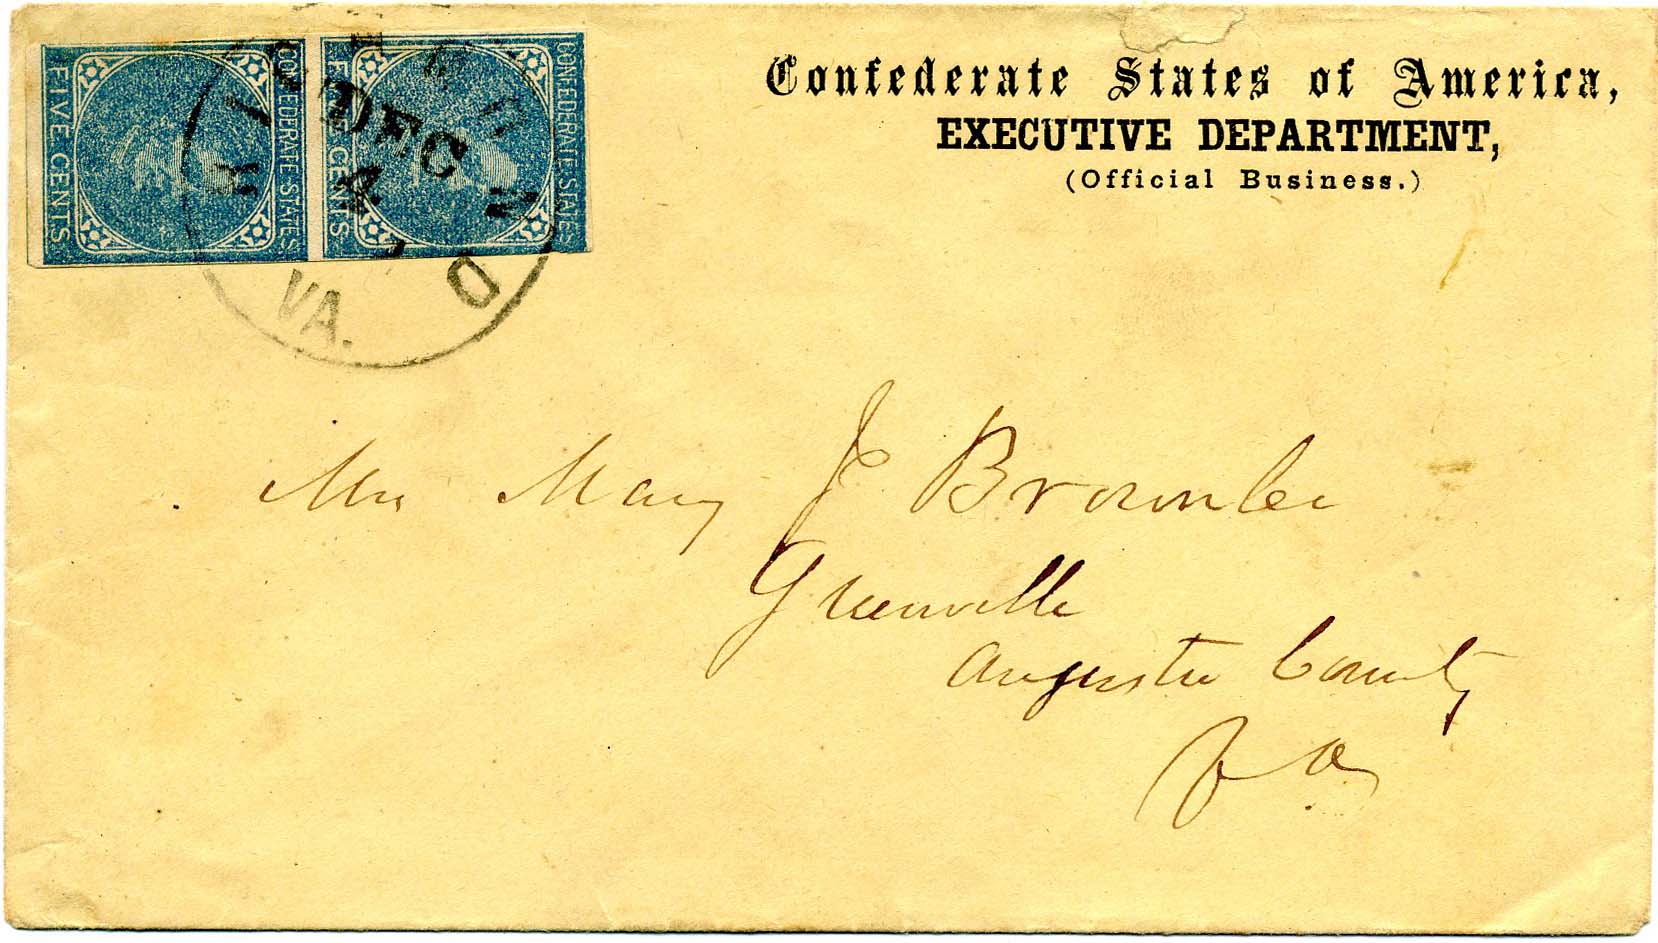 Confederate States of America,
EXECUTIVE DEPARTMENT,
(Official Business.)
FIVE CENTS
CONFEDERATE STATES
FIVE CENTS
CONFEDERATE STATES
RICHMOND
DEC
VA.
Mrs Mary J Brownlee
Greenville
Augusta County
Va